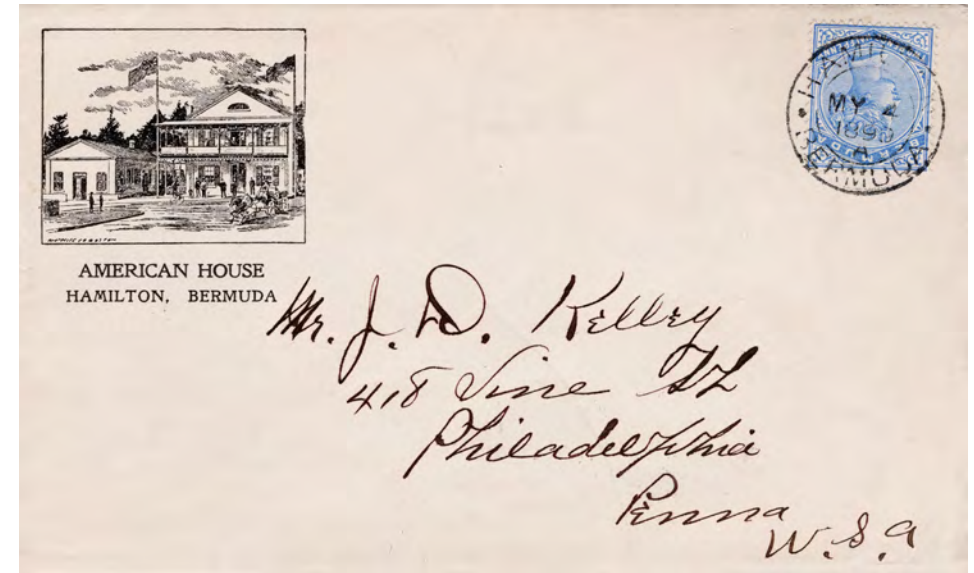 AMERICAN HOUSE
HAMILTON, BERMUDA
HAMIL
MY
189
A
BERMUDA
Mr. J. D. Kelley
418 Vine St
Philadelphia
Penna
U.S.A